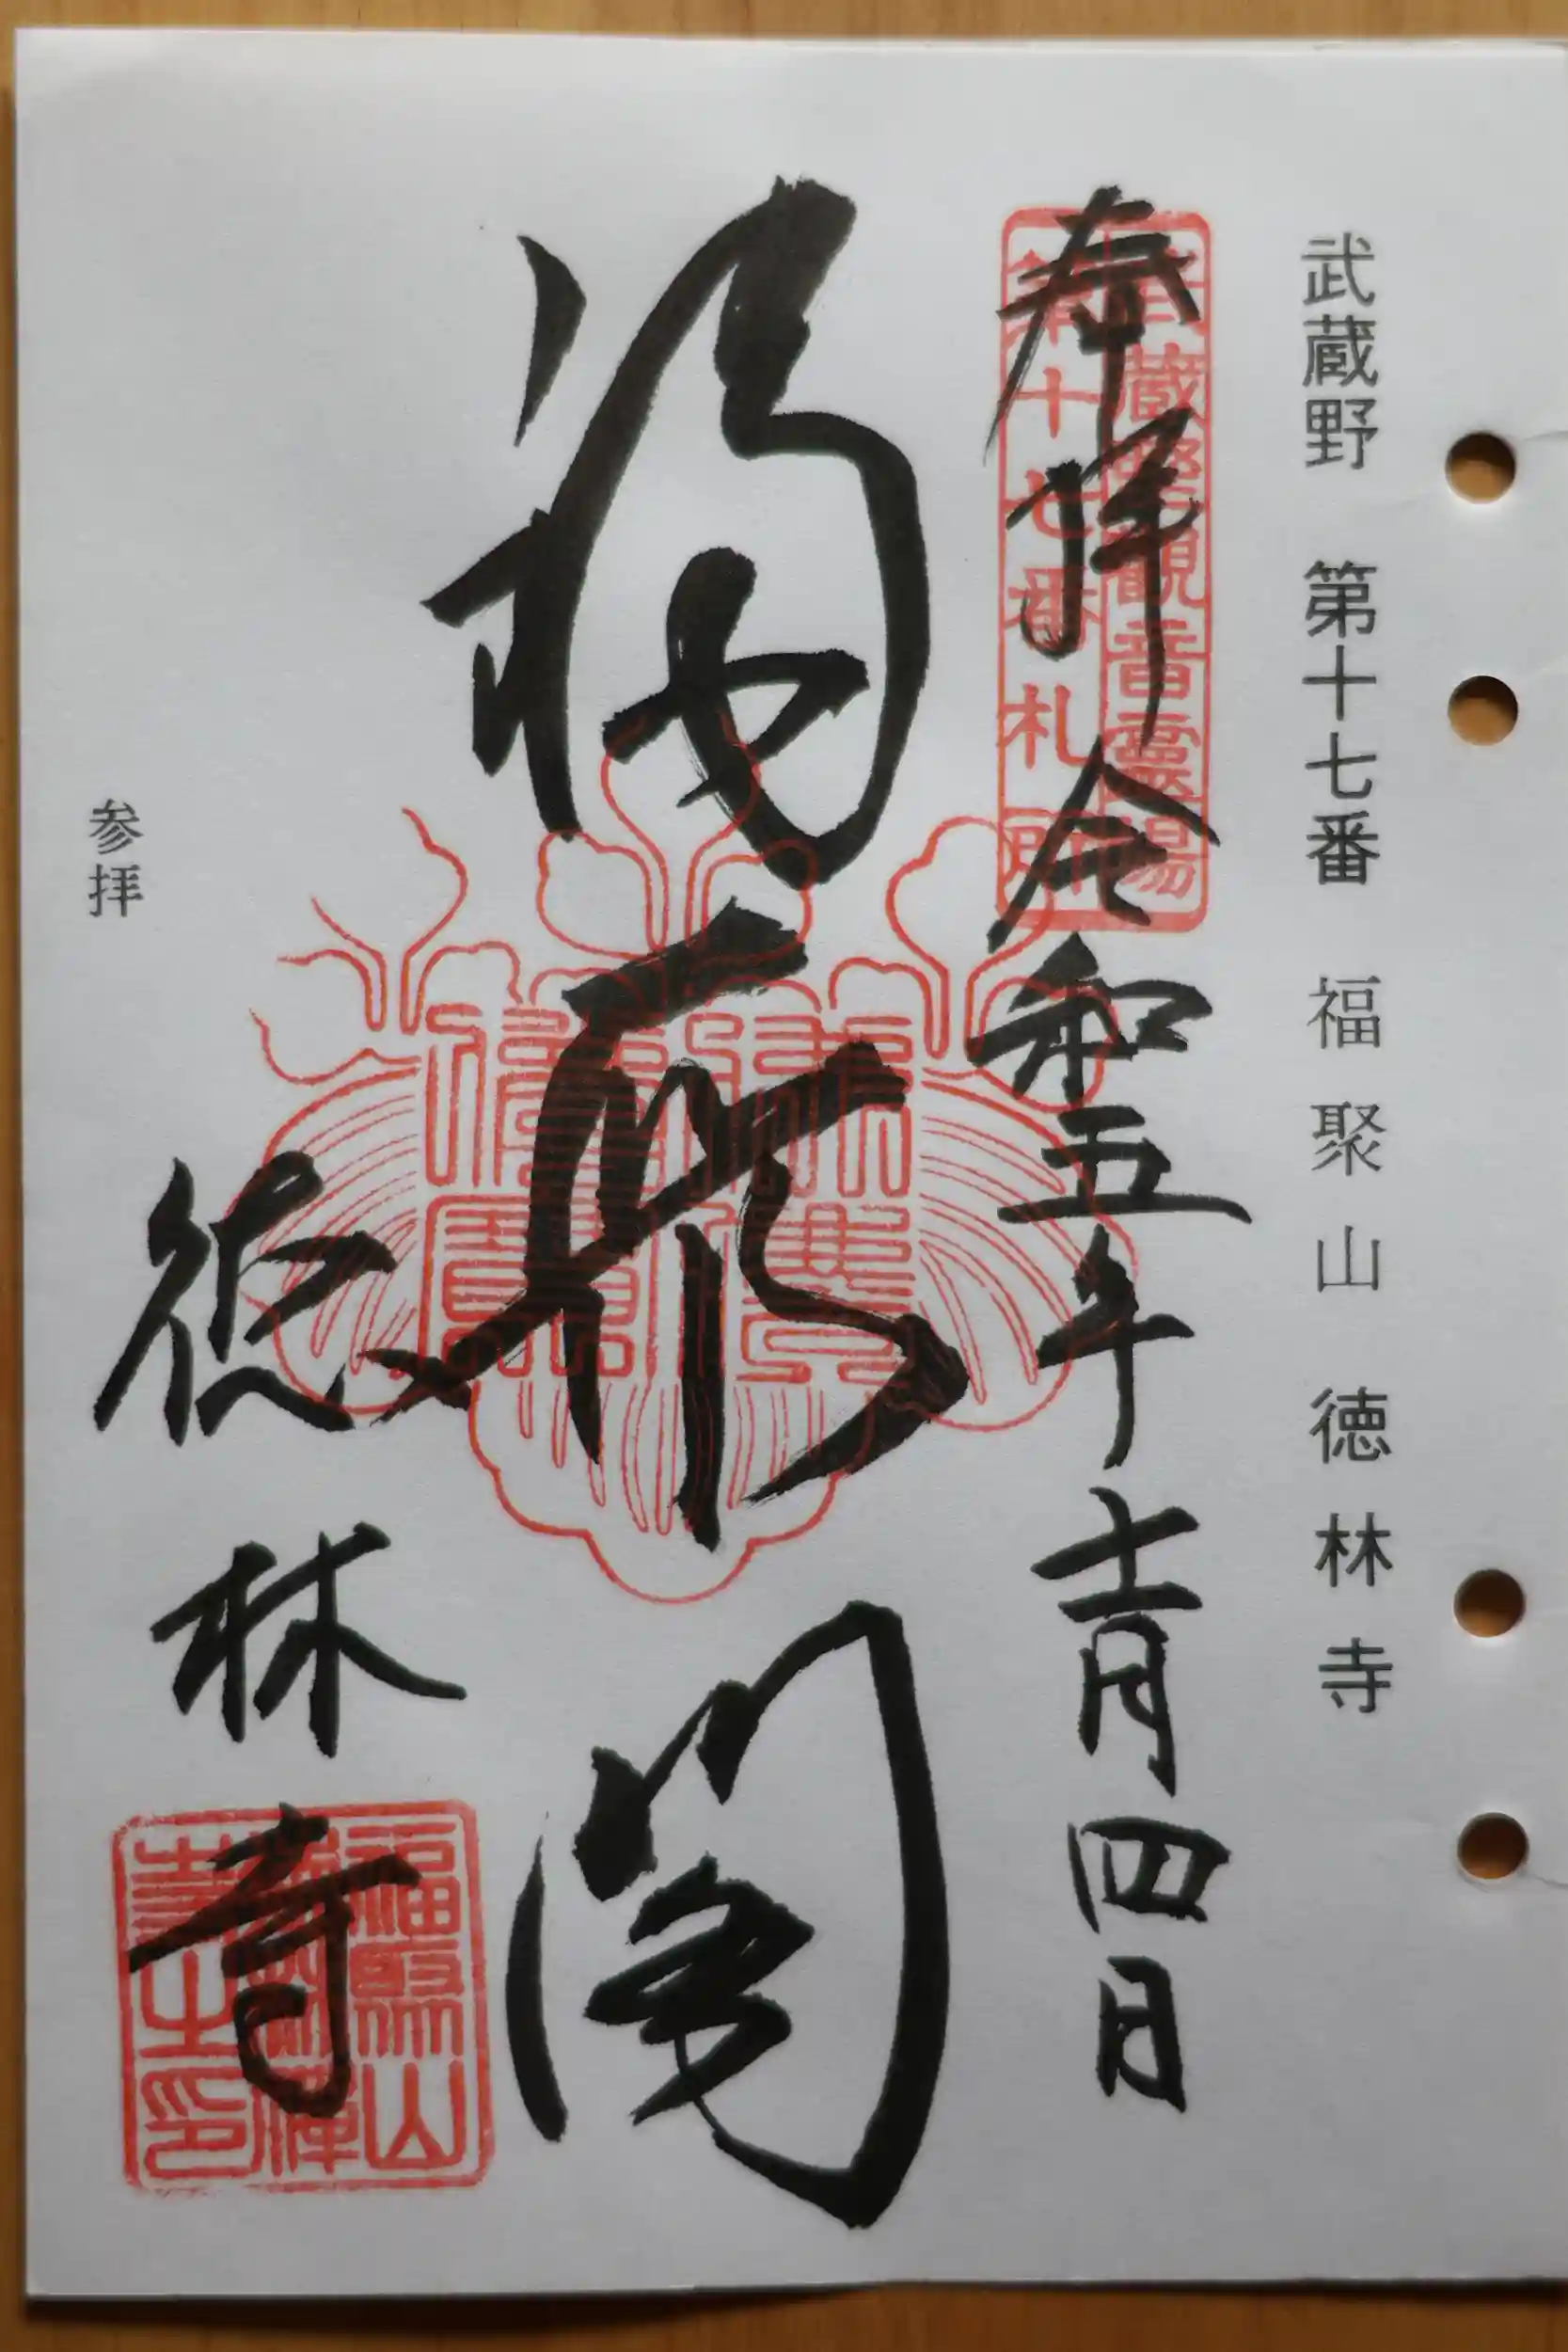 武蔵野 第十七番 福聚山 徳林寺
武蔵野観音霊場
第十七番札所
奉拝 令和五年十一月四日
福聚閣
徳林寺
福聚山
寺之印
参拝